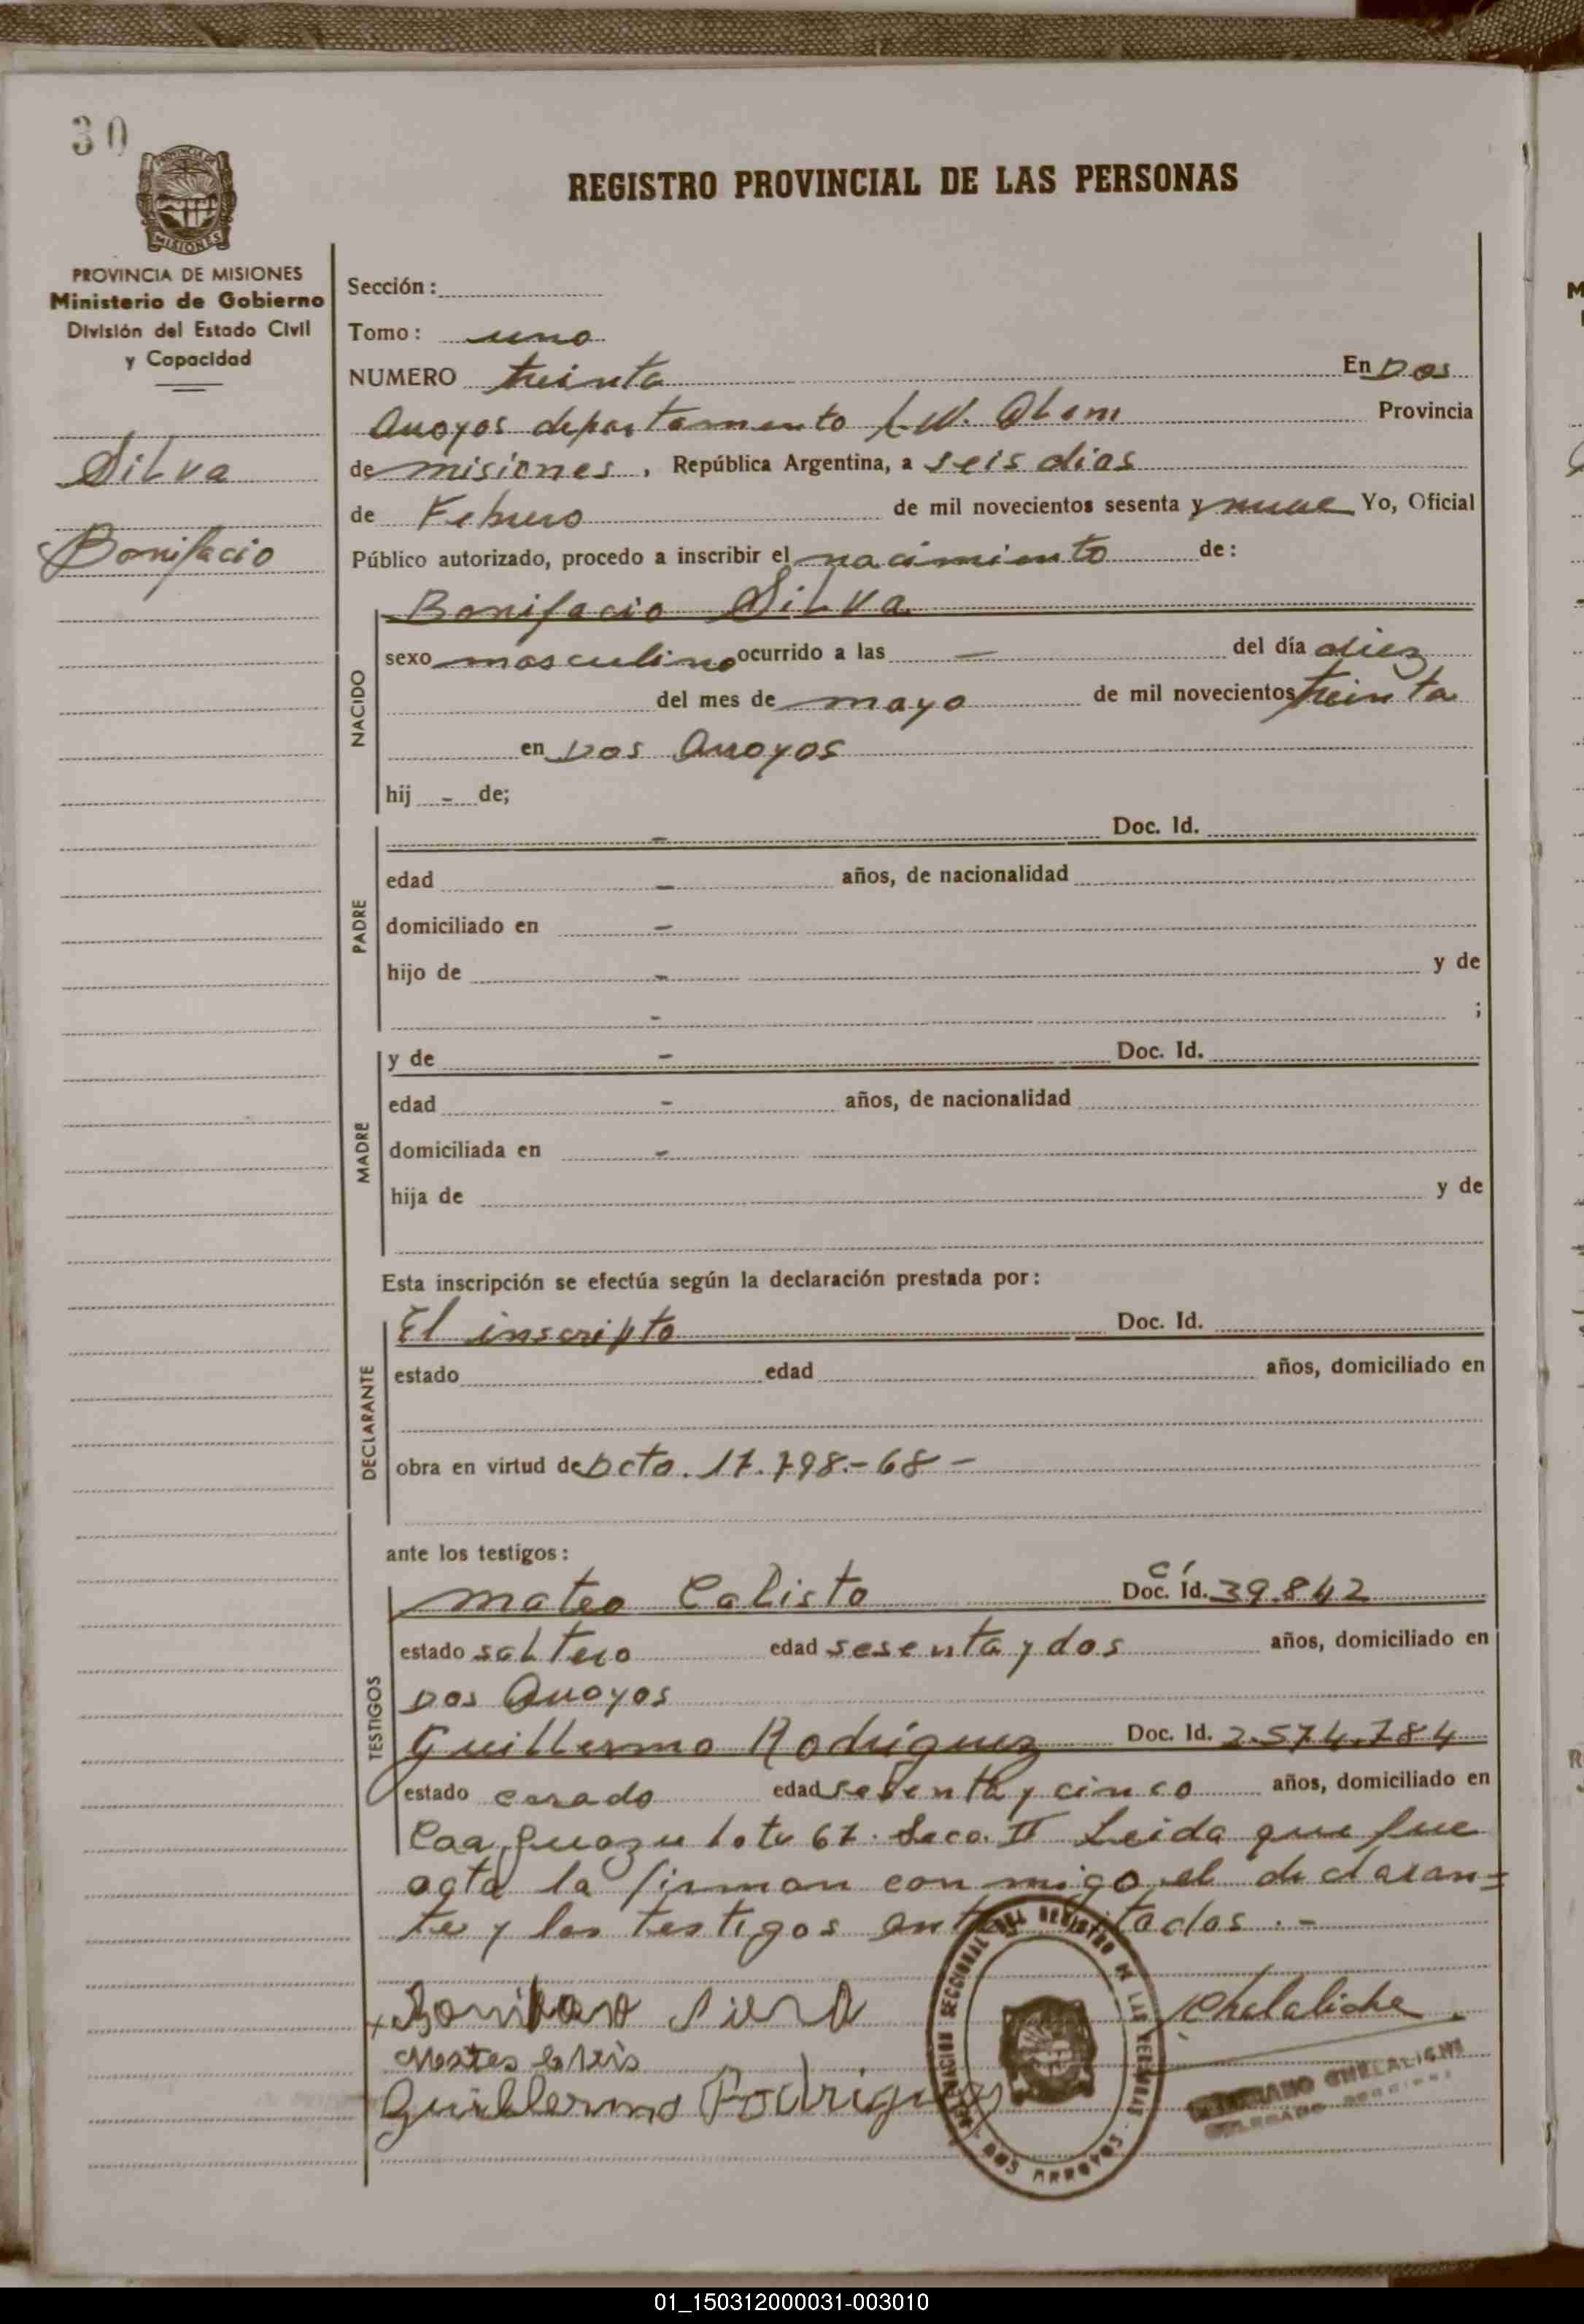 30
PROVINCIA DE
MISIONES
REGISTRO PROVINCIAL DE LAS PERSONAS
PROVINCIA DE MISIONES
Ministerio de Gobierno
División del Estado Civil
y Capacidad
Silva
Bonifacio
Sección:
Tomo: uno
NUMERO treinta En Dos
Arroyos departamento L.N. Alem Provincia
de misiones, República Argentina, a seis dias
de Febrero de mil novecientos sesenta y nueve Yo, Oficial
Público autorizado, procedo a inscribir el nacimiento de:
NACIDO
Bonifacio Silva
sexo masculino ocurrido a las — del día diez
del mes de mayo de mil novecientos treinta
en Dos Arroyos
hij - de;
PADRE
- Doc. Id.
edad - años, de nacionalidad
domiciliado en -
hijo de - y de
- ;
MADRE
y de - Doc. Id.
edad - años, de nacionalidad
domiciliada en -
hija de y de
Esta inscripción se efectúa según la declaración prestada por:
DECLARANTE
El inscripto Doc. Id.
estado edad años, domiciliado en
obra en virtud de Dcto. 17.798.-68 -
ante los testigos:
TESTIGOS
mateo Calisto Doc. Id. CI 39.842
estado soltero edad sesenta y dos años, domiciliado en
Dos Arroyos
Guillermo Rodríguez Doc. Id. 2.574.784
estado casado edad sesenta y cinco años, domiciliado en
Caa Guazu lote 67. Secc. II Leida que fue
acta la firman con migo el declaran=
te y los testigos antes citados.-
Guillermo Rodriguez
DELEGACION SECCIONAL DEL REGISTRO DE LAS PERSONAS
DOS ARROYOS
01_150312000031-003010